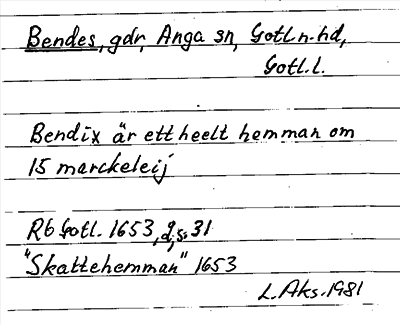 Bendes, gdr, Anga sn, Gotl. n. hd,
Gotl. l.
Bendix är ett heelt hemman om
15 marckeleij
Rb Gotl. 1653, s. 31
"Skattehemman" 1653
L. Aks. 1981